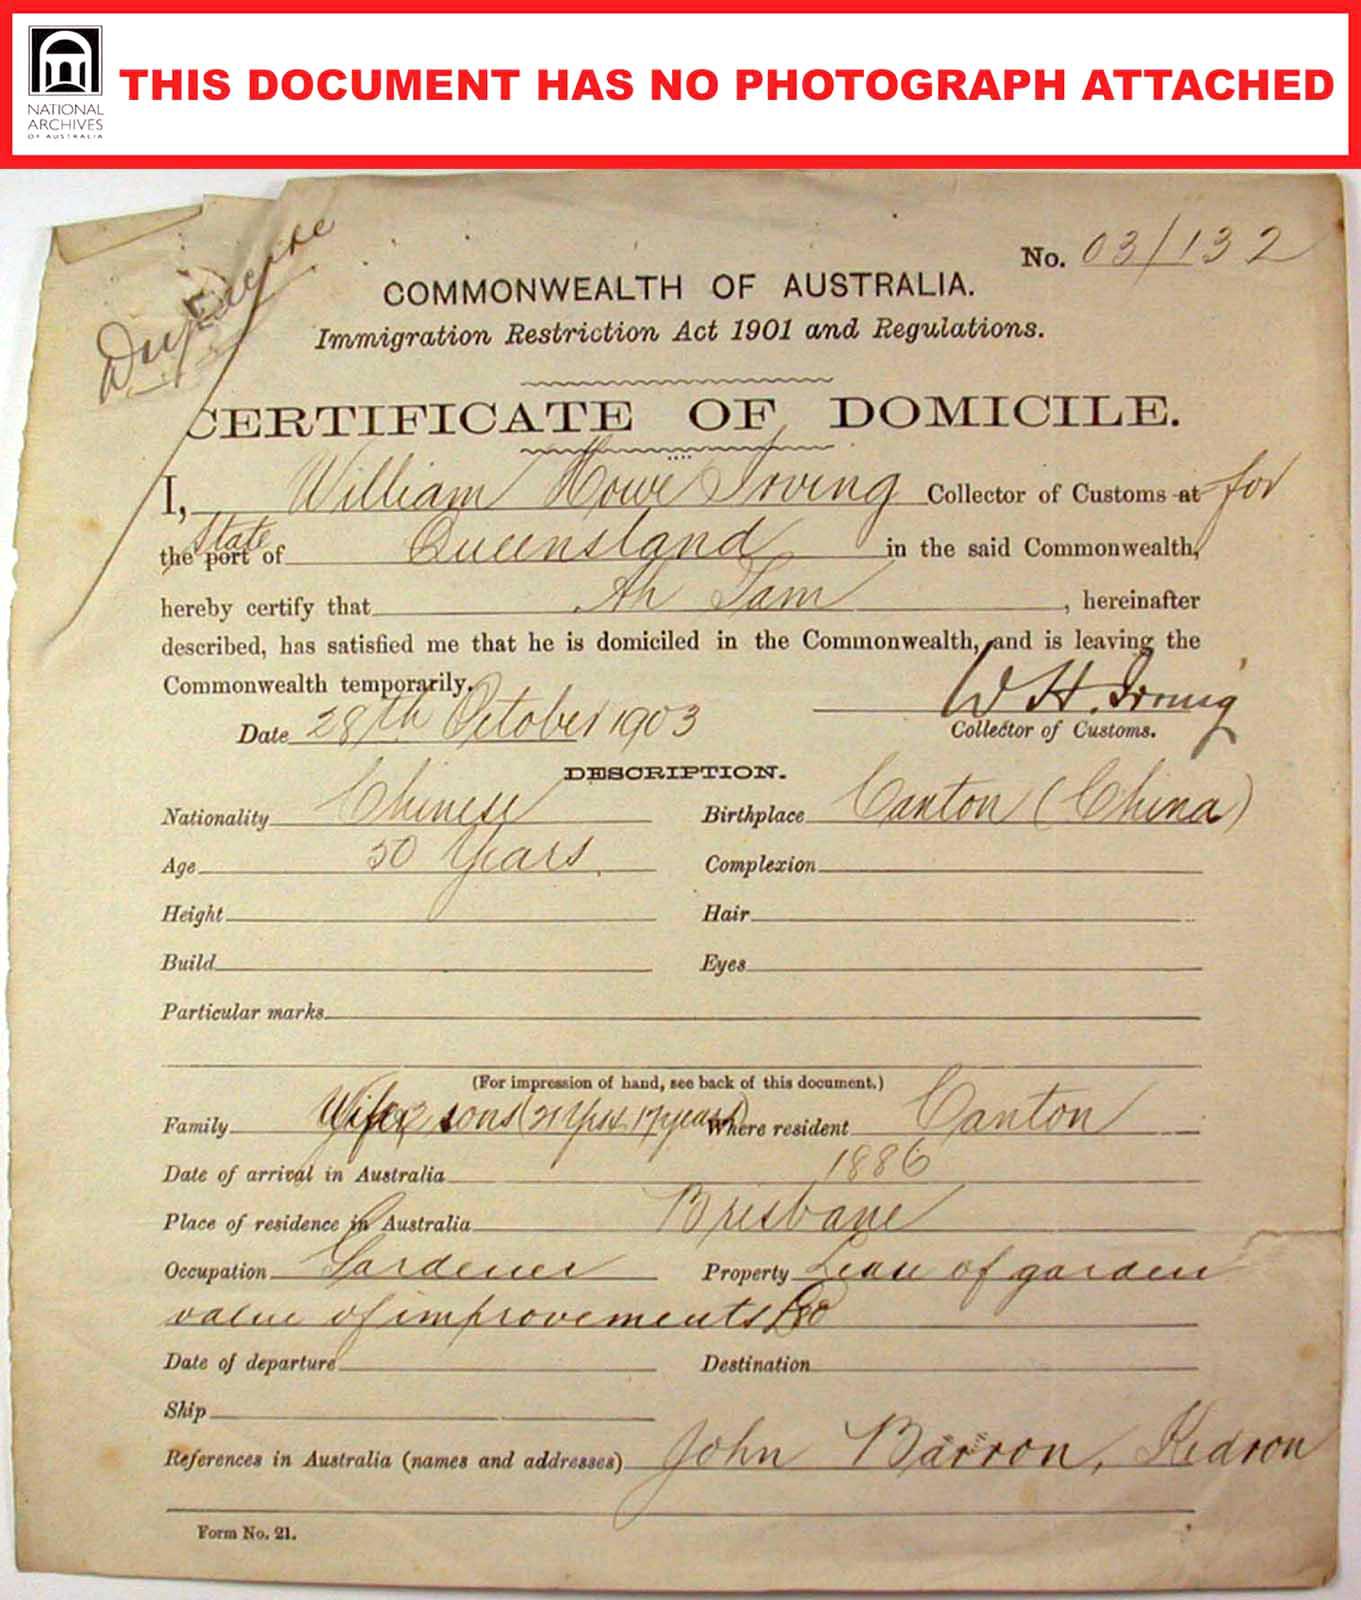 THIS DOCUMENT HAS NO PHOTOGRAPH ATTACHED
NATIONAL
ARCHIVES
OF AUSTRALIA
Duplicate
No. 03/132
COMMONWEALTH OF AUSTRALIA.
Immigration Restriction Act 1901 and Regulations.
CERTIFICATE OF DOMICILE.
I, William Howe Irving Collector of Customs at for
the port State of Queensland in the said Commonwealth,
hereby certify that Ah Sam, hereinafter
described, has satisfied me that he is domiciled in the Commonwealth, and is leaving the
Commonwealth temporarily.
W H. Irving
Date 28th October 1903 Collector of Customs.
DESCRIPTION.
Nationality Chinese Birthplace Canton (China)
Age 50 Years. Complexion
Height Hair
Build Eyes
Particular marks
(For impression of hand, see back of this document.)
Family Wife & 2 sons (21 yrs & 17 years) Where resident Canton
Date of arrival in Australia 1886
Place of residence in Australia Brisbane
Occupation Gardener Property Lease of garden
value of improvements £80
Date of departure Destination
Ship
References in Australia (names and addresses) John Barron, Kedron
Form No. 21.